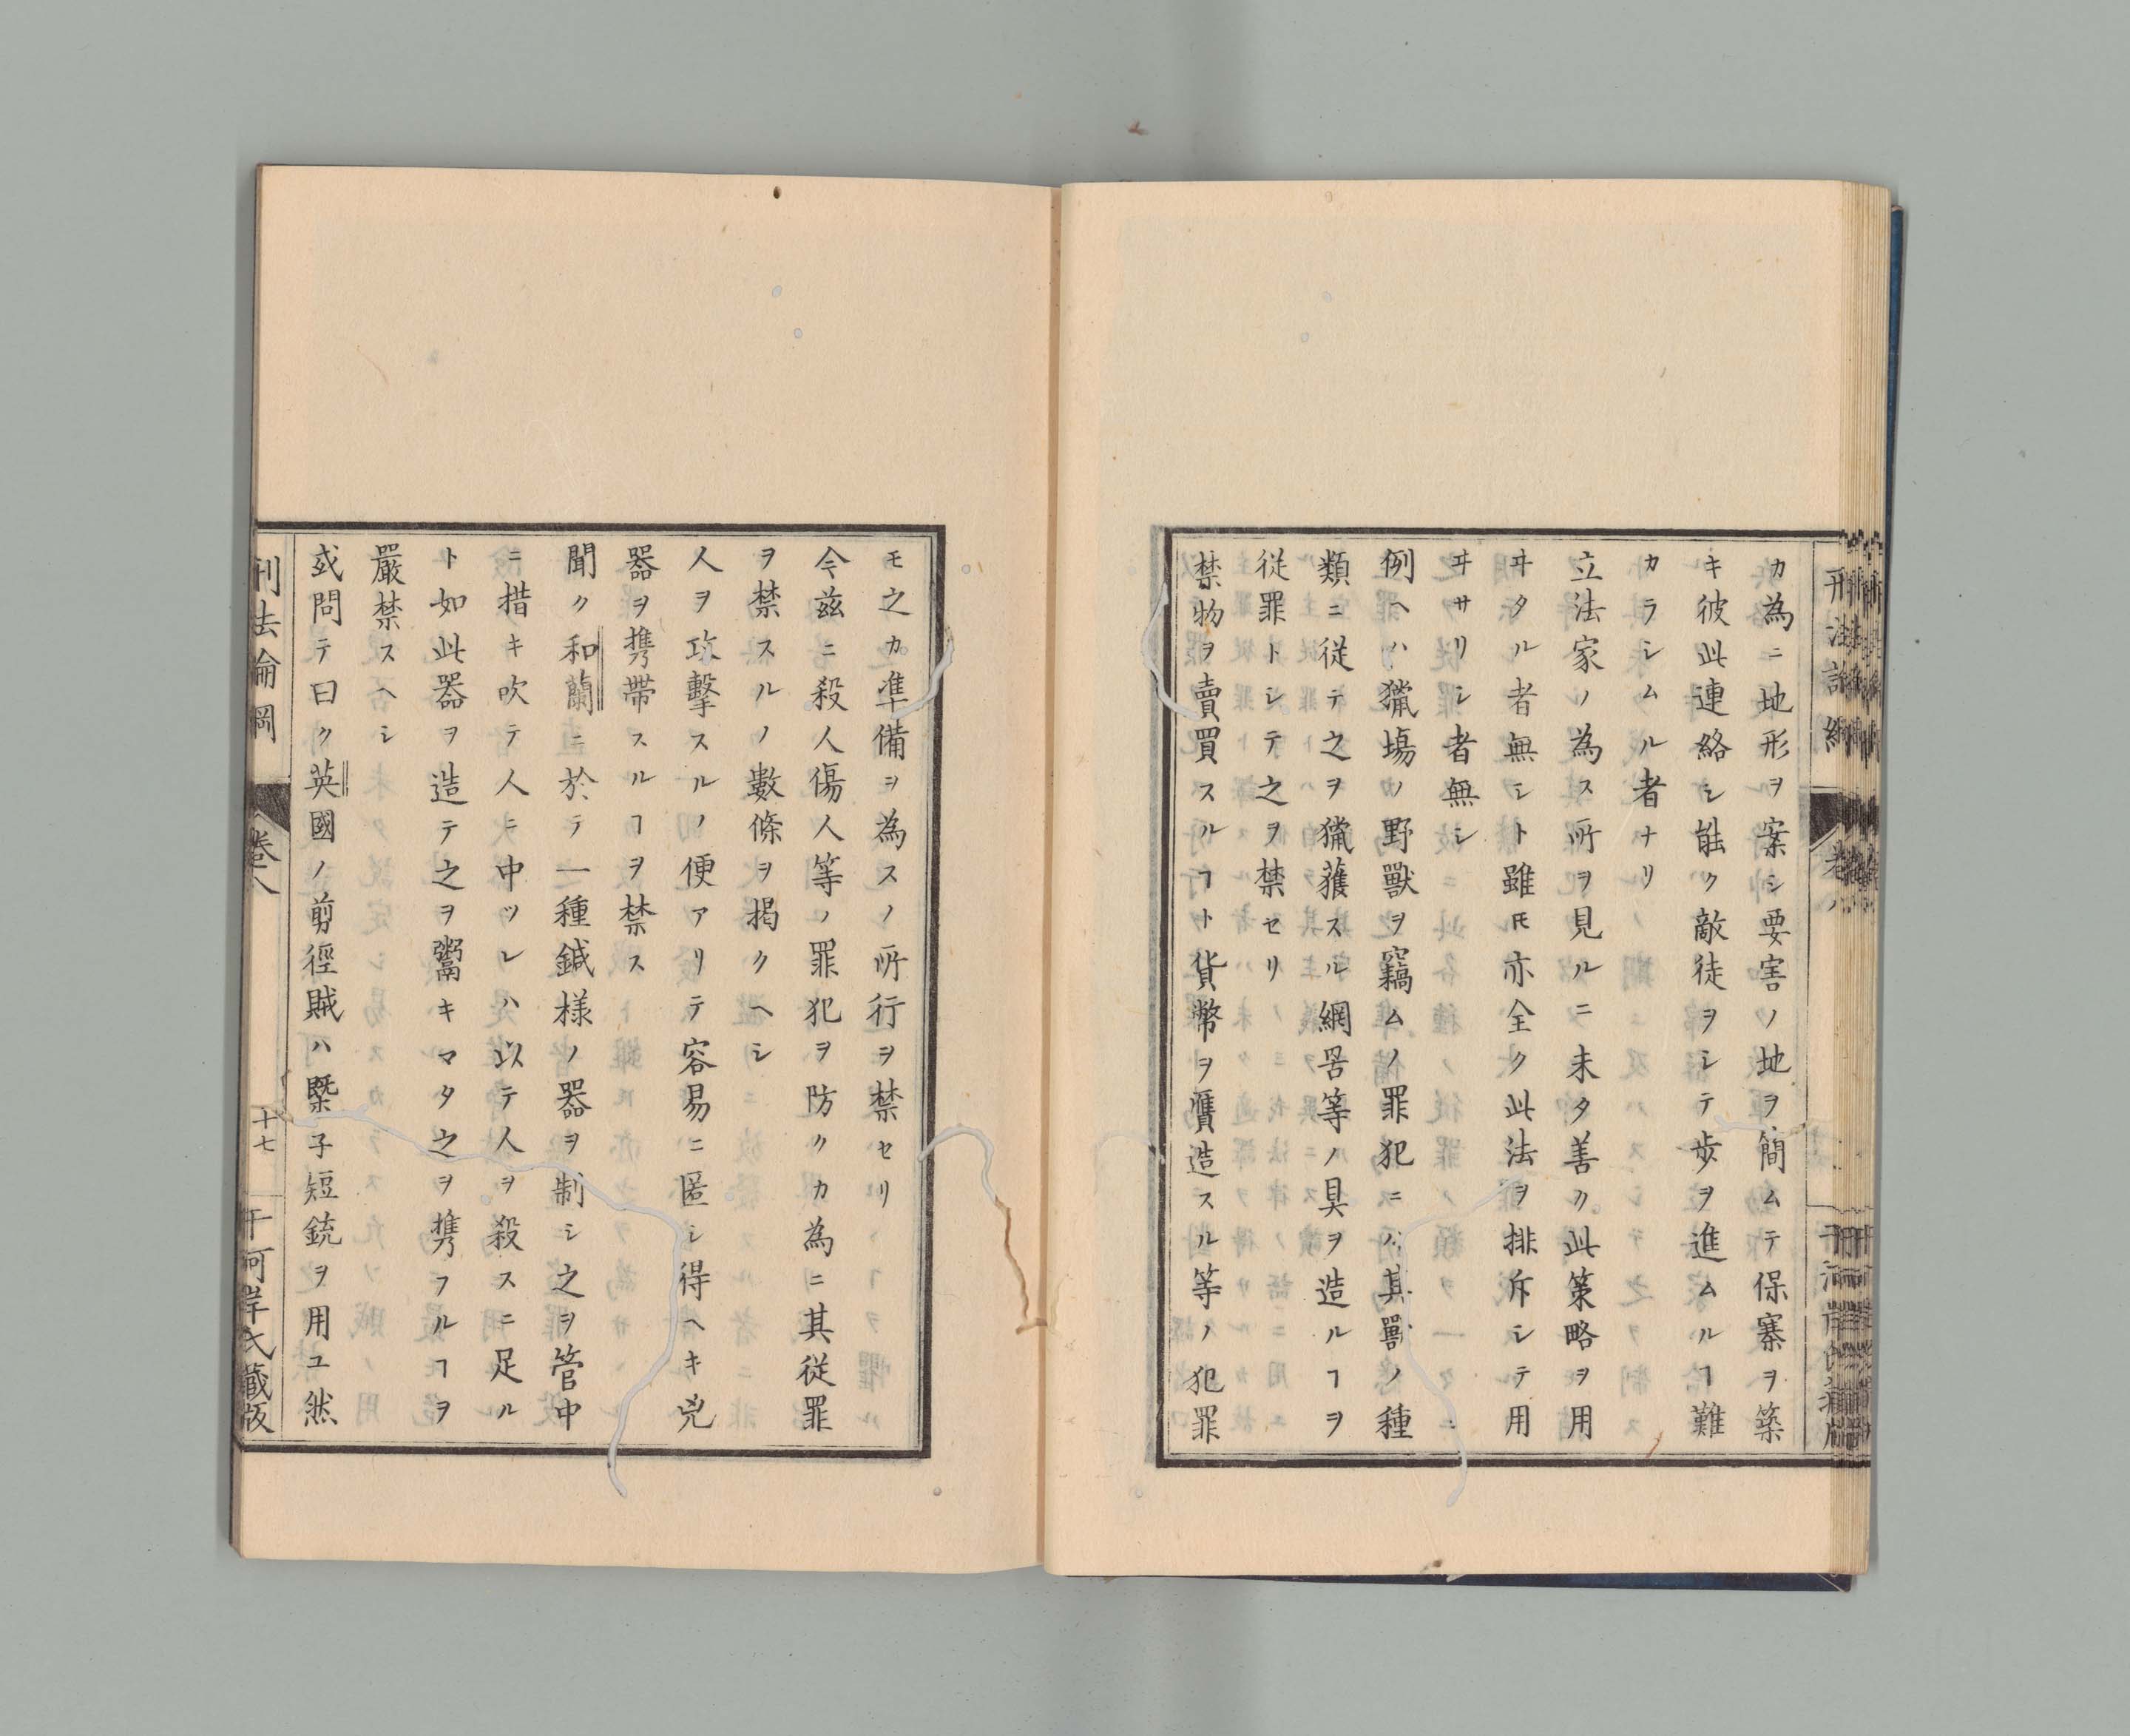 カ為ニ地形ヲ案シ要害ノ地ヲ簡ムテ保寨ヲ築
キ彼此連絡シ能ク敵徒ヲシテ歩ヲ進ムルヿ難
カラシムル者ナリ
立法家ノ為ス所ヲ見ルニ未タ善ク此策略ヲ用
ヰタル者無シト雖𪜈亦全ク此法ヲ排斥シテ用
ヰサリシ者無シ
例ヘハ獵塲ノ野獸ヲ竊ムノ罪犯ニハ其獸ノ種
類ニ従テ之ヲ獵獲スル網罟等ノ具ヲ造ルヿヲ
従罪トシテ之ヲ禁セリ
禁物ヲ賣買スルヿト貨幣ヲ贋造スル等ノ犯罪
モ之カ凖備ヲ為スノ所行ヲ禁セリ
今茲ニ殺人傷人等ノ罪犯ヲ防クカ為ニ其従罪
ヲ禁スルノ數條ヲ掲クヘシ
人ヲ攻擊スルノ便アリテ容易ニ匿シ得ヘキ兇
器ヲ携帶スルヿヲ禁ス
聞ク和蘭ニ於テ一種鍼様ノ器ヲ制シ之ヲ管中
ニ措キ吹テ人ニ中ツレハ以テ人ヲ殺スニ足ル
ト如此器ヲ造テ之ヲ鬻キマタ之ヲ携フルヿヲ
嚴禁スヘシ
或問テ曰ク英國ノ剪徑賊ハ槩子短銃ヲ用ユ然
刑法論綱
卷八
十七
干河岸氏藏版